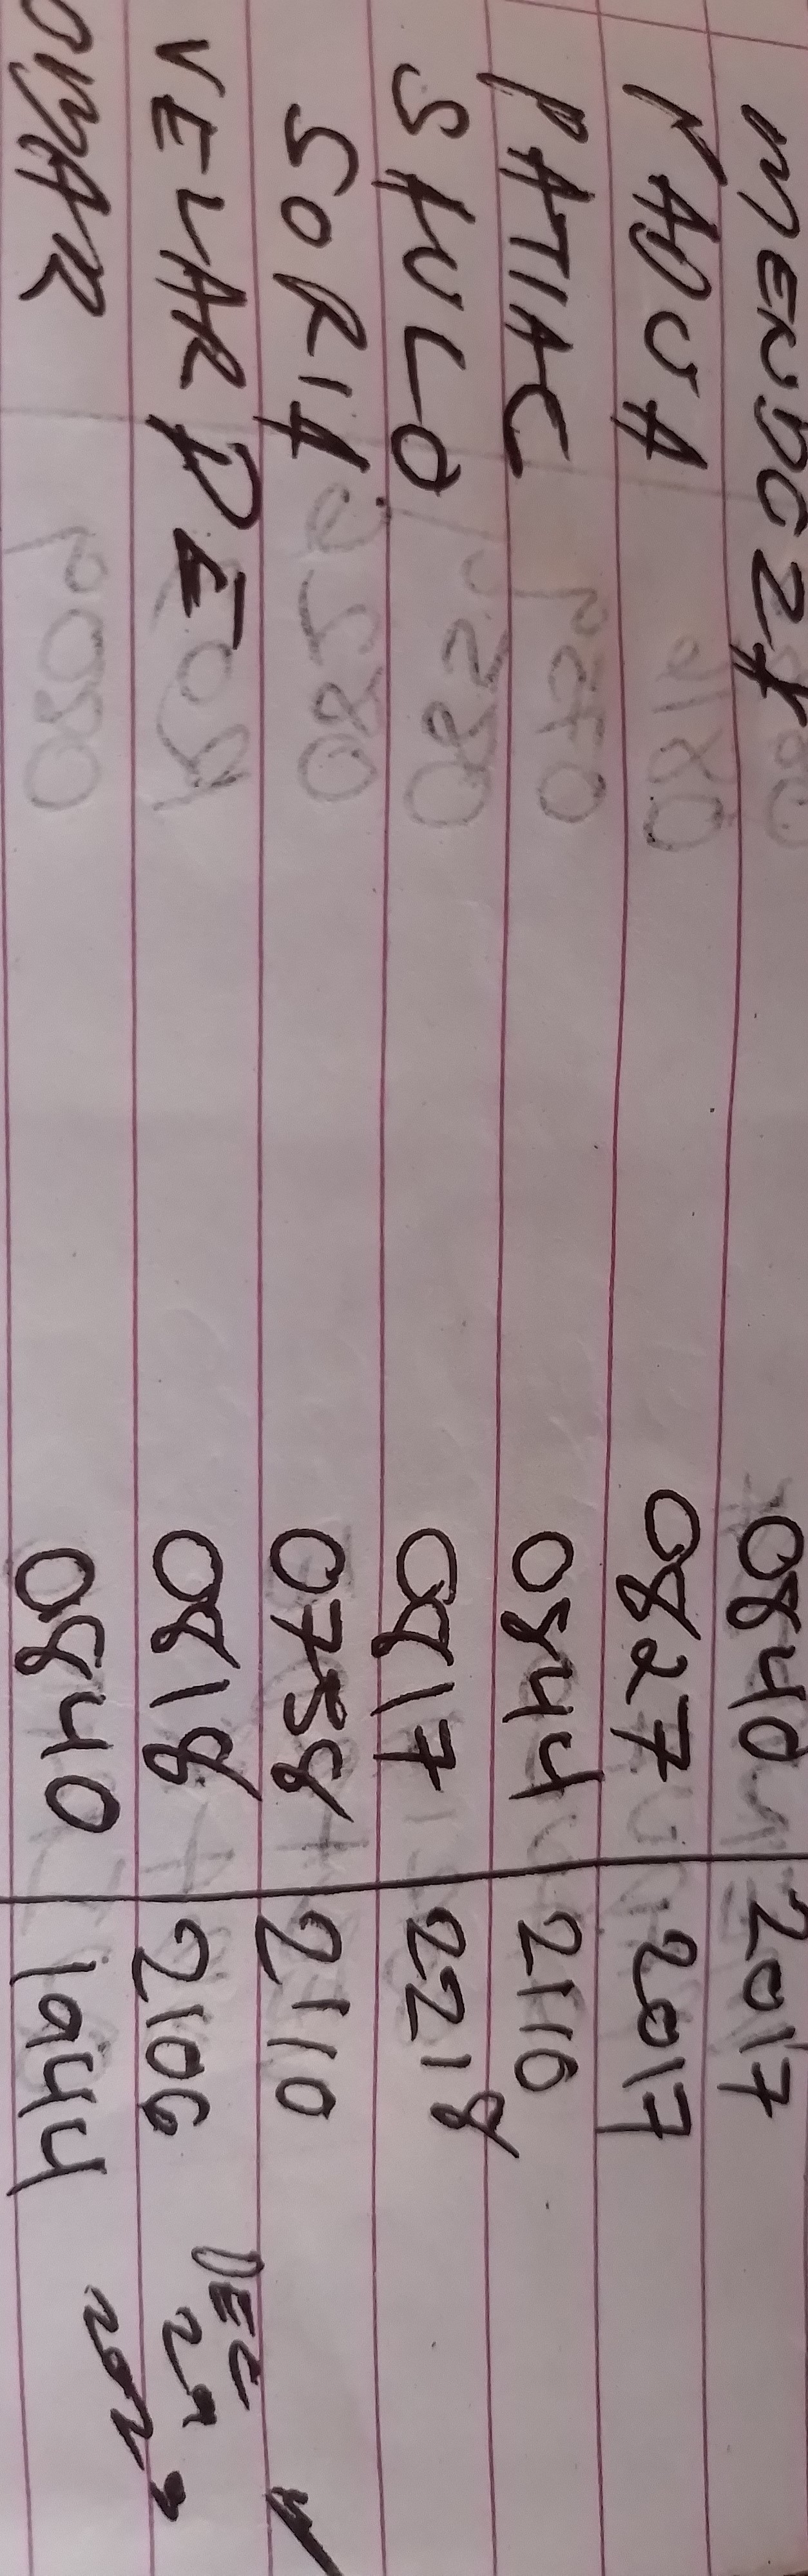 MENDOZA 0840 2017
PADUA 0827 2017
PATIAC 0844 2110
SAULO 0817 2218
SORIA 0758 2110
VELARDE 0818 2106 DEC
29
2023
OMAR 0840 1944